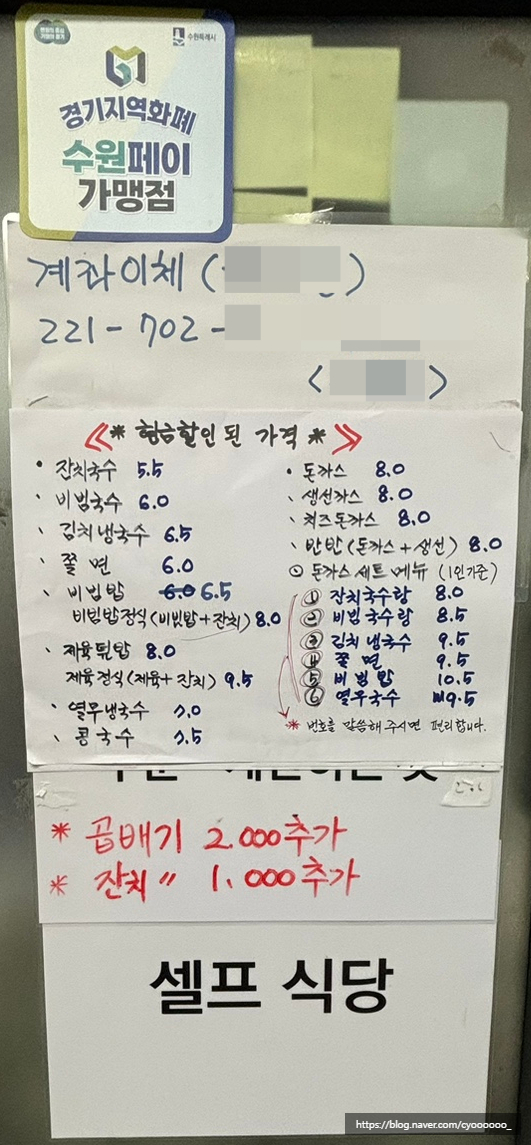 수원특례시
경기지역화폐
수원페이
가맹점
계좌이체 (
)
221-702-
< >
《 * 현금할인 된 가격 * 》
• 잔치국수 5.5
、비빔국수 6.0
、김치냉국수 6.5
、쫄 면 6.0
、비빔밥 6.0 6.5
비빔밥정식(비빔밥+잔치) 8.0
• 제육덮밥 8.0
제육정식(제육+잔치) 9.5
、열무냉국수 7.0
、콩국수 7.5
• 돈까스 8.0
、생선까스 8.0
、치즈돈까스 8.0
、반반(돈까스+생선) 8.0
⊙ 돈까스세트메뉴 (1인기준)
① 잔치국수랑 8.0
② 비빔국수랑 8.5
③ 김치냉국수 9.5
④ 쫄 면 9.5
⑤ 비빔밥 10.5
⑥ 열무국수 9.5
* 번호를 말씀해 주시면 편리합니다.
* 곱배기 2.000추가
* 잔치 〃 1.000추가
셀프 식당
https://blog.naver.com/cyoooooo_